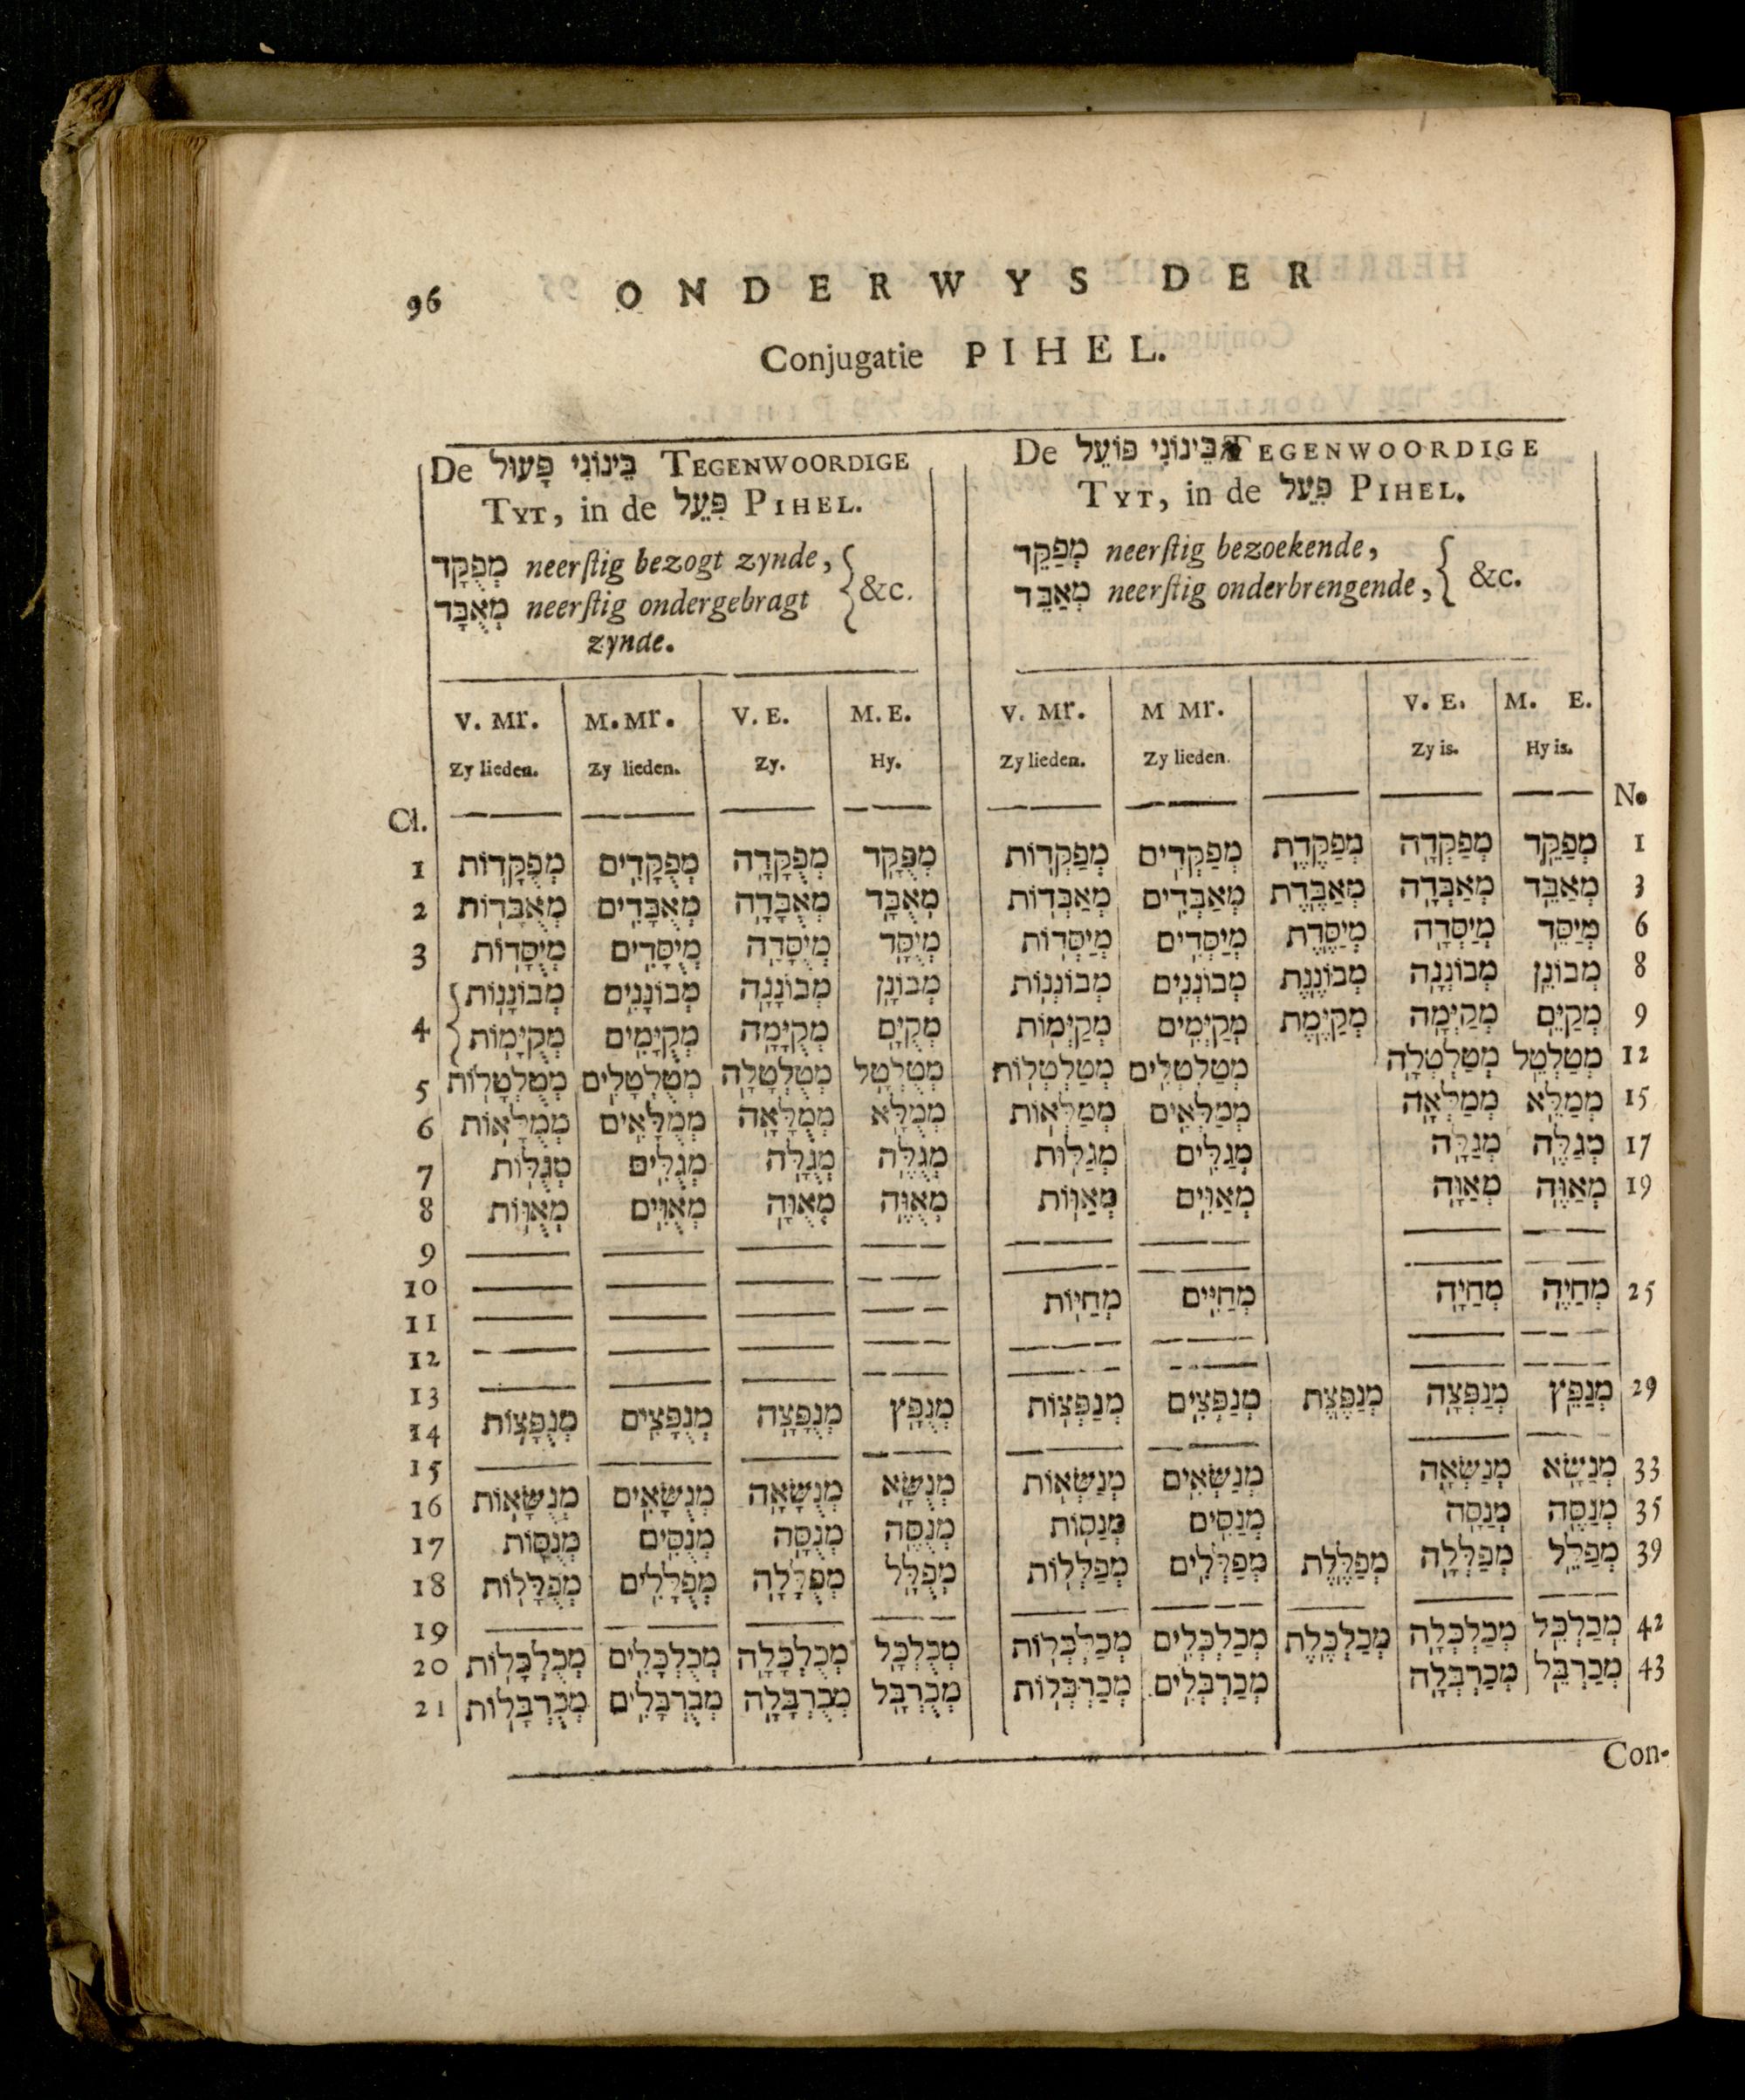 96 ONDERWYS DER
Conjugatie PIHEL.
De בֵּינוֹנִי פָּעוּל TEGENWOORDIGE
TYT, in de פִּעֵל PIHEL.
מְפֻקָּד neerſtig bezogt zynde, &c.
מְאֻבָּד neerſtig ondergebragt
zynde.
De בֵּינוֹנִי פּוֹעֵל TEGENWOORDIGE
TYT, in de פִּעֵל PIHEL.
מְפַקֵּד neerſtig bezoekende, &c.
מְאַבֵּד neerſtig onderbrengende,
V. Mr. M. Mr. V. E. M. E. V. Mr. M Mr. V. E. M. E.
Zy lieden. Zy lieden. Zy. Hy. Zy lieden. Zy lieden. Zy is. Hy is.
Cl. N.
1 מְפֻקָּדוֹת מְפֻקָּדִים מְפֻקָּדָה מְפֻקָּד מְפַקְּדוֹת מְפַקְּדִים מְפַקֶּדֶת מְפַקְּדָה מְפַקֵּד 1
2 מְאֻבָּדוֹת מְאֻבָּדִים מְאֻבָּדָה מְאֻבָּד מְאַבְּדוֹת מְאַבְּדִים מְאַבֶּדֶת מְאַבְּדָה מְאַבֵּד 3
3 מְיֻסָּדוֹת מְיֻסָּדִים מְיֻסָּדָה מְיֻסָּד מְיַסְּדוֹת מְיַסְּדִים מְיַסֶּדֶת מְיַסְּדָה מְיַסֵּד 6
4 מְבוֹנָנוֹת מְבוֹנָנִים מְבוֹנָנָה מְבוֹנָן מְבוֹנְנוֹת מְבוֹנְנִים מְבוֹנֶנֶת מְבוֹנְנָה מְבוֹנֵן 8
מְקֻיָּמוֹת מְקֻיָּמִים מְקֻיָּמָה מְקֻיָּם מְקַיְּמוֹת מְקַיְּמִים מְקַיֶּמֶת מְקַיְּמָה מְקַיֵּם 9
5 מְטֻלְטָלוֹת מְטֻלְטָלִים מְטֻלְטָלָה מְטֻלְטָל מְטַלְטְלוֹת מְטַלְטְלִים מְטַלְטְלָה מְטַלְטֵל 12
6 מְמֻלָּאוֹת מְמֻלָּאִים מְמֻלָּאָה מְמֻלָּא מְמַלְּאוֹת מְמַלְּאִים מְמַלְּאָה מְמַלֵּא 15
7 מְגֻלּוֹת מְגֻלִּים מְגֻלָּה מְגֻלֶּה מְגַלּוֹת מְגַלִּים מְגַלָּה מְגַלֶּה 17
8 מְאֻוּוֹת מְאֻוִּים מְאֻוָּה מְאֻוֶּה מְאַוּוֹת מְאַוִּים מְאַוָּה מְאַוֶּה 19
9
10
11 מְחַיּוֹת מְחַיִּים מְחַיָּה מְחַיֶּה 25
12
13
14 מְנֻפָּצוֹת מְנֻפָּצִים מְנֻפָּצָה מְנֻפָּץ מְנַפְּצוֹת מְנַפְּצִים מְנַפֶּצֶת מְנַפְּצָה מְנַפֵּץ 29
15
16 מְנֻשָּׂאוֹת מְנֻשָּׂאִים מְנֻשָּׂאָה מְנֻשָּׂא מְנַשְּׂאוֹת מְנַשְּׂאִים מְנַשְּׂאָה מְנַשֵּׂא 33
17 מְנֻסּוֹת מְנֻסִּים מְנֻסָּה מְנֻסֶּה מְנַסּוֹת מְנַסִּים מְנַסָּה מְנַסֶּה 35
18 מְפֻלָּלוֹת מְפֻלָּלִים מְפֻלָּלָה מְפֻלָּל מְפַלְּלוֹת מְפַלְּלִים מְפַלֶּלֶת מְפַלְּלָה מְפַלֵּל 39
19
20 מְכֻלְכָּלוֹת מְכֻלְכָּלִים מְכֻלְכָּלָה מְכֻלְכָּל מְכַלְכְּלוֹת מְכַלְכְּלִים מְכַלְכֶּלֶת מְכַלְכְּלָה מְכַלְכֵּל 42
21 מְכֻרְבָּלוֹת מְכֻרְבָּלִים מְכֻרְבָּלָה מְכֻרְבָּל מְכַרְבְּלוֹת מְכַרְבְּלִים מְכַרְבְּלָה מְכַרְבֵּל 43
Con-